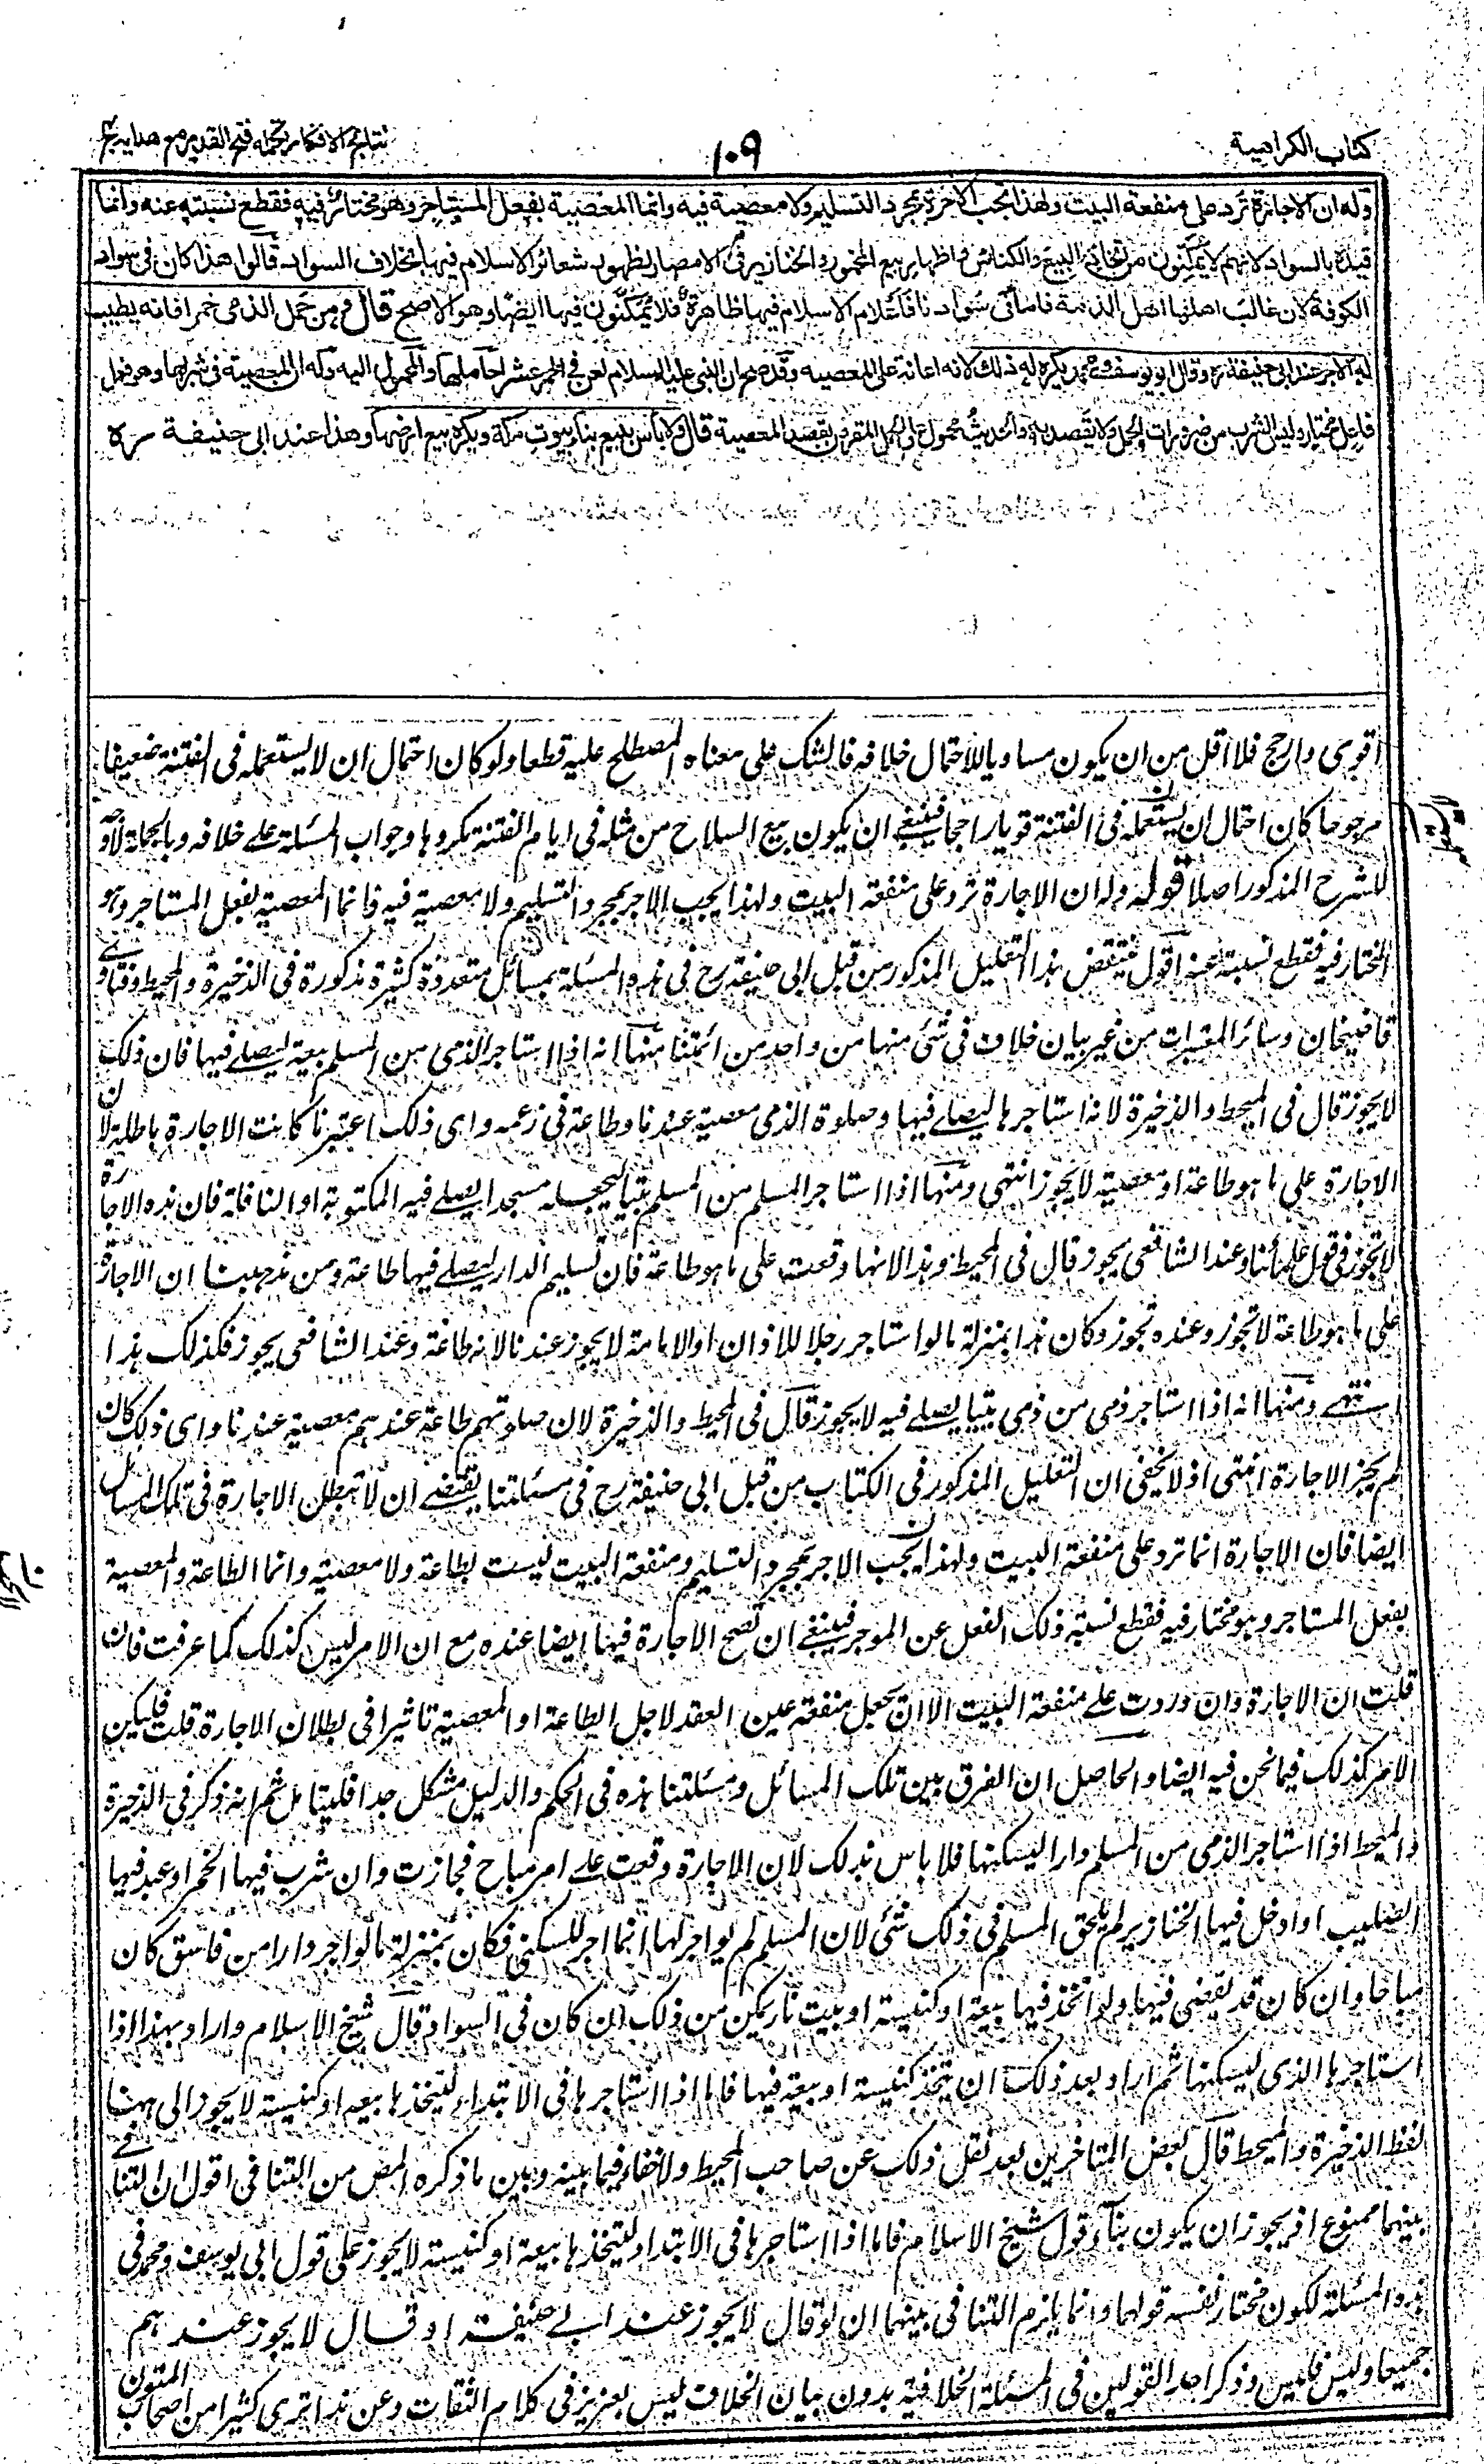 كتاب الكراهية
١٠٩
نتائج الافكار تكملة فتح القدير مع هدايه ج٤
وله ان الاجارة ترد على منفعة البيت ولهذا تجب الاجرة بمجرد التسليم ولا معصية فيه وانما المعصية بفعل المستاجر وهو مختار فيه فقطع نسبته عنه وانما
قيده بالسواد لانهم لا يمكنون من اتخاذ البيع والكنائس واظهار بيع الخمور والخنازير فى الامصار لظهور شعائر الاسلام فيها بخلاف السواد قالوا هذا كان فى سواد
الكوفة لان غالب اهلها اهل الذمة فاما فى سوادنا فاعلام الاسلام فيها ظاهرة فلا يمكنون فيها ايضا وهو الاصح قال ومن حمل الذمى خمرا فانه يطيب
له الاجر عند ابى حنيفة ره وقال ابو يوسف و محمد يكره له ذلك لانه اعانة على المعصيه وقد صح ان النبى عليه السلام لعن فى الخمر عشرا حاملها والمحمول اليه وله ان المعصية فى شربها وهو فعل
فاعل مختار وليس الشرب من ضرورات الحمل ولا يقصد به والحديث محمول على الحمل المقرون بقصد المعصية قال ولا باس ببيع بناء بيوت مكة ويكره بيع ارضها وهذا عند ابى حنيفة ره
اقوى وارجح فلا اقل من ان يكون مساويا لاحتمال خلافه فالشك على معناه المصطلح عليه قطعا ولو كان احتمال ان لا يستعمله فى الفتنة ضعيفا
مرجوحا كان احتمال ان يستعمله فى الفتنة قويا راجحا فينبغى ان يكون بيع السلاح من مثله فى ايام الفتنة مكروها وجواب المسئلة على خلافه وبالجملة لا وجه
للشرح المذكور اصلا قوله وله ان الاجارة ترد على منفعة البيت ولهذا يجب الاجر بمجرد التسليم ولا معصية فيه فانما المعصية بفعل المستاجر وهو
المختار فيه فقطع نسبته عنه اقول ينتقض هذا التعليل المذكور من قبل ابى حنيفة رح فى هذه المسئلة بمسائل متعددة كثيرة مذكورة فى الذخيرة والمحيط وفتاوے
قاضيخان وسائر المعتبرات من غير بيان خلاف فى شئ منها من واحد من ائمتنا منها انه اذا استاجر الذمى من المسلم بيعة يصلے فيها فان ذلك
لا يجوز قال فى المحيط والذخيرة لانه استاجرها ليصلے فيها وصلوة الذمى معصية عندنا وطاعة فى زعمه واى ذلك اعتبرنا كانت الاجارة باطلة لان
الاجارة على ما هو طاعة او معصية لا يجوز انتهى ومنها اذا استاجر المسلم من المسلم بيتا ليجعله مسجدا يصلے فيه المكتوبة او النافلة فان هذه الاجارة
لا تجوز فى قول علمائنا وعند الشافعى يجوز قال فى المحيط وهذا لانها وقعت على ما هو طاعة فان تسليم الدار ليصلے فيها طاعة ومن مذهبنا ان الاجارة
على ما هو طاعة لا تجوز وعنده تجوز وكان هذا بمنزلة ما لو استاجر رجلا للاذان او الامامة لا يجوز عندنا لانه طاعة وعند الشافعى يجوز فكذلك هذا
انتهے ومنها انه اذا استاجر ذمى من ذمى بيتا يصلے فيه لا يجوز قال فى المحيط والذخيرة لان صلوتهم طاعة عندهم معصية عندنا واى ذلك كان
لم يجز الاجارة انتهى اذ لا يخفى ان التعليل المذكور فى الكتاب من قبل ابى حنيفة رح فى مسئلتنا يقتضے ان لا تبطل الاجارة فى تلك المسائل
ايضا فان الاجارة انما ترد على منفعة البيت ولهذا يجب الاجر بمجرد التسليم ومنفعة البيت ليست بطاعة ولا معصية وانما الطاعة والمعصية
بفعل المستاجر وهو مختار فيه فقطع نسبة ذلك الفعل عن الموجر فينبغے ان تصح الاجارة فيها ايضا عنده مع ان الامر ليس كذلك كما عرفت فان
قلت ان الاجارة وان وردت على منفعة البيت الا ان يجعل منفعة عين العقد لاجل الطاعة او المعصية تاثيرا فى بطلان الاجارة قلت فليكن
الامر كذلك فيما نحن فيه ايضا والحاصل ان الفرق بين تلك المسائل ومسئلتنا هذه فى الحكم والدليل مشكل جدا فليتامل ثم انه ذكر فى الذخيرة
والمحيط اذا استاجر الذمى من المسلم دارا ليسكنها فلا باس بذلك لان الاجارة وقعت على امر مباح فجازت وان شرب فيها الخمر او عبد فيها
الصليب او ادخل فيها الخنازير لم يلحق المسلم فى ذلك شئ لان المسلم لم يواجر لها انما اجر للسكنى فكان بمنزلة ما لو اجر دارا من فاسق كان
مباحا وان كان قد يعصى فيها ولو اتخذ فيها بيعة او كنيسة او بيت نار يمكن من ذلك ان كان فى السواد قال شيخ الاسلام واراد بهذا اذا
استاجرها الذمى ليسكنها ثم اراد بعد ذلك ان يتخذ كنيسة او بيعة فيها فاما اذا استاجرها فى الابتداء ليتخذها بيعة او كنيسة لا يجوز الى ههنا
لفظ الذخيرة والمحيط قال بعض المتاخرين بعد نقل ذلك عن صاحب المحيط ولا خفاء فيما بينه وبين ما ذكره المص من التنافى اقول ان التنافے
بينهما ممنوع اذ يجوز ان يكون بناء قول شيخ الاسلام فاما اذا استاجرها فى الابتداء ليتخذها بيعة او كنيسة لا يجوز على قول ابى يوسف ومحمد فى
هذه المسئلة لكون مختار نفسه قولهما وانما يلزم التنافى بينهما ان لو قال لا يجوز عند ابے حنيفة او قال لا يجوز عندهم
جميعا وليس فليس وذكر احد القولين فى المسئلة الخلافية بدون بيان الخلاف ليس بعزيز فى كلام الثقات وعن هذا ترى كثيرا من اصحاب المتون